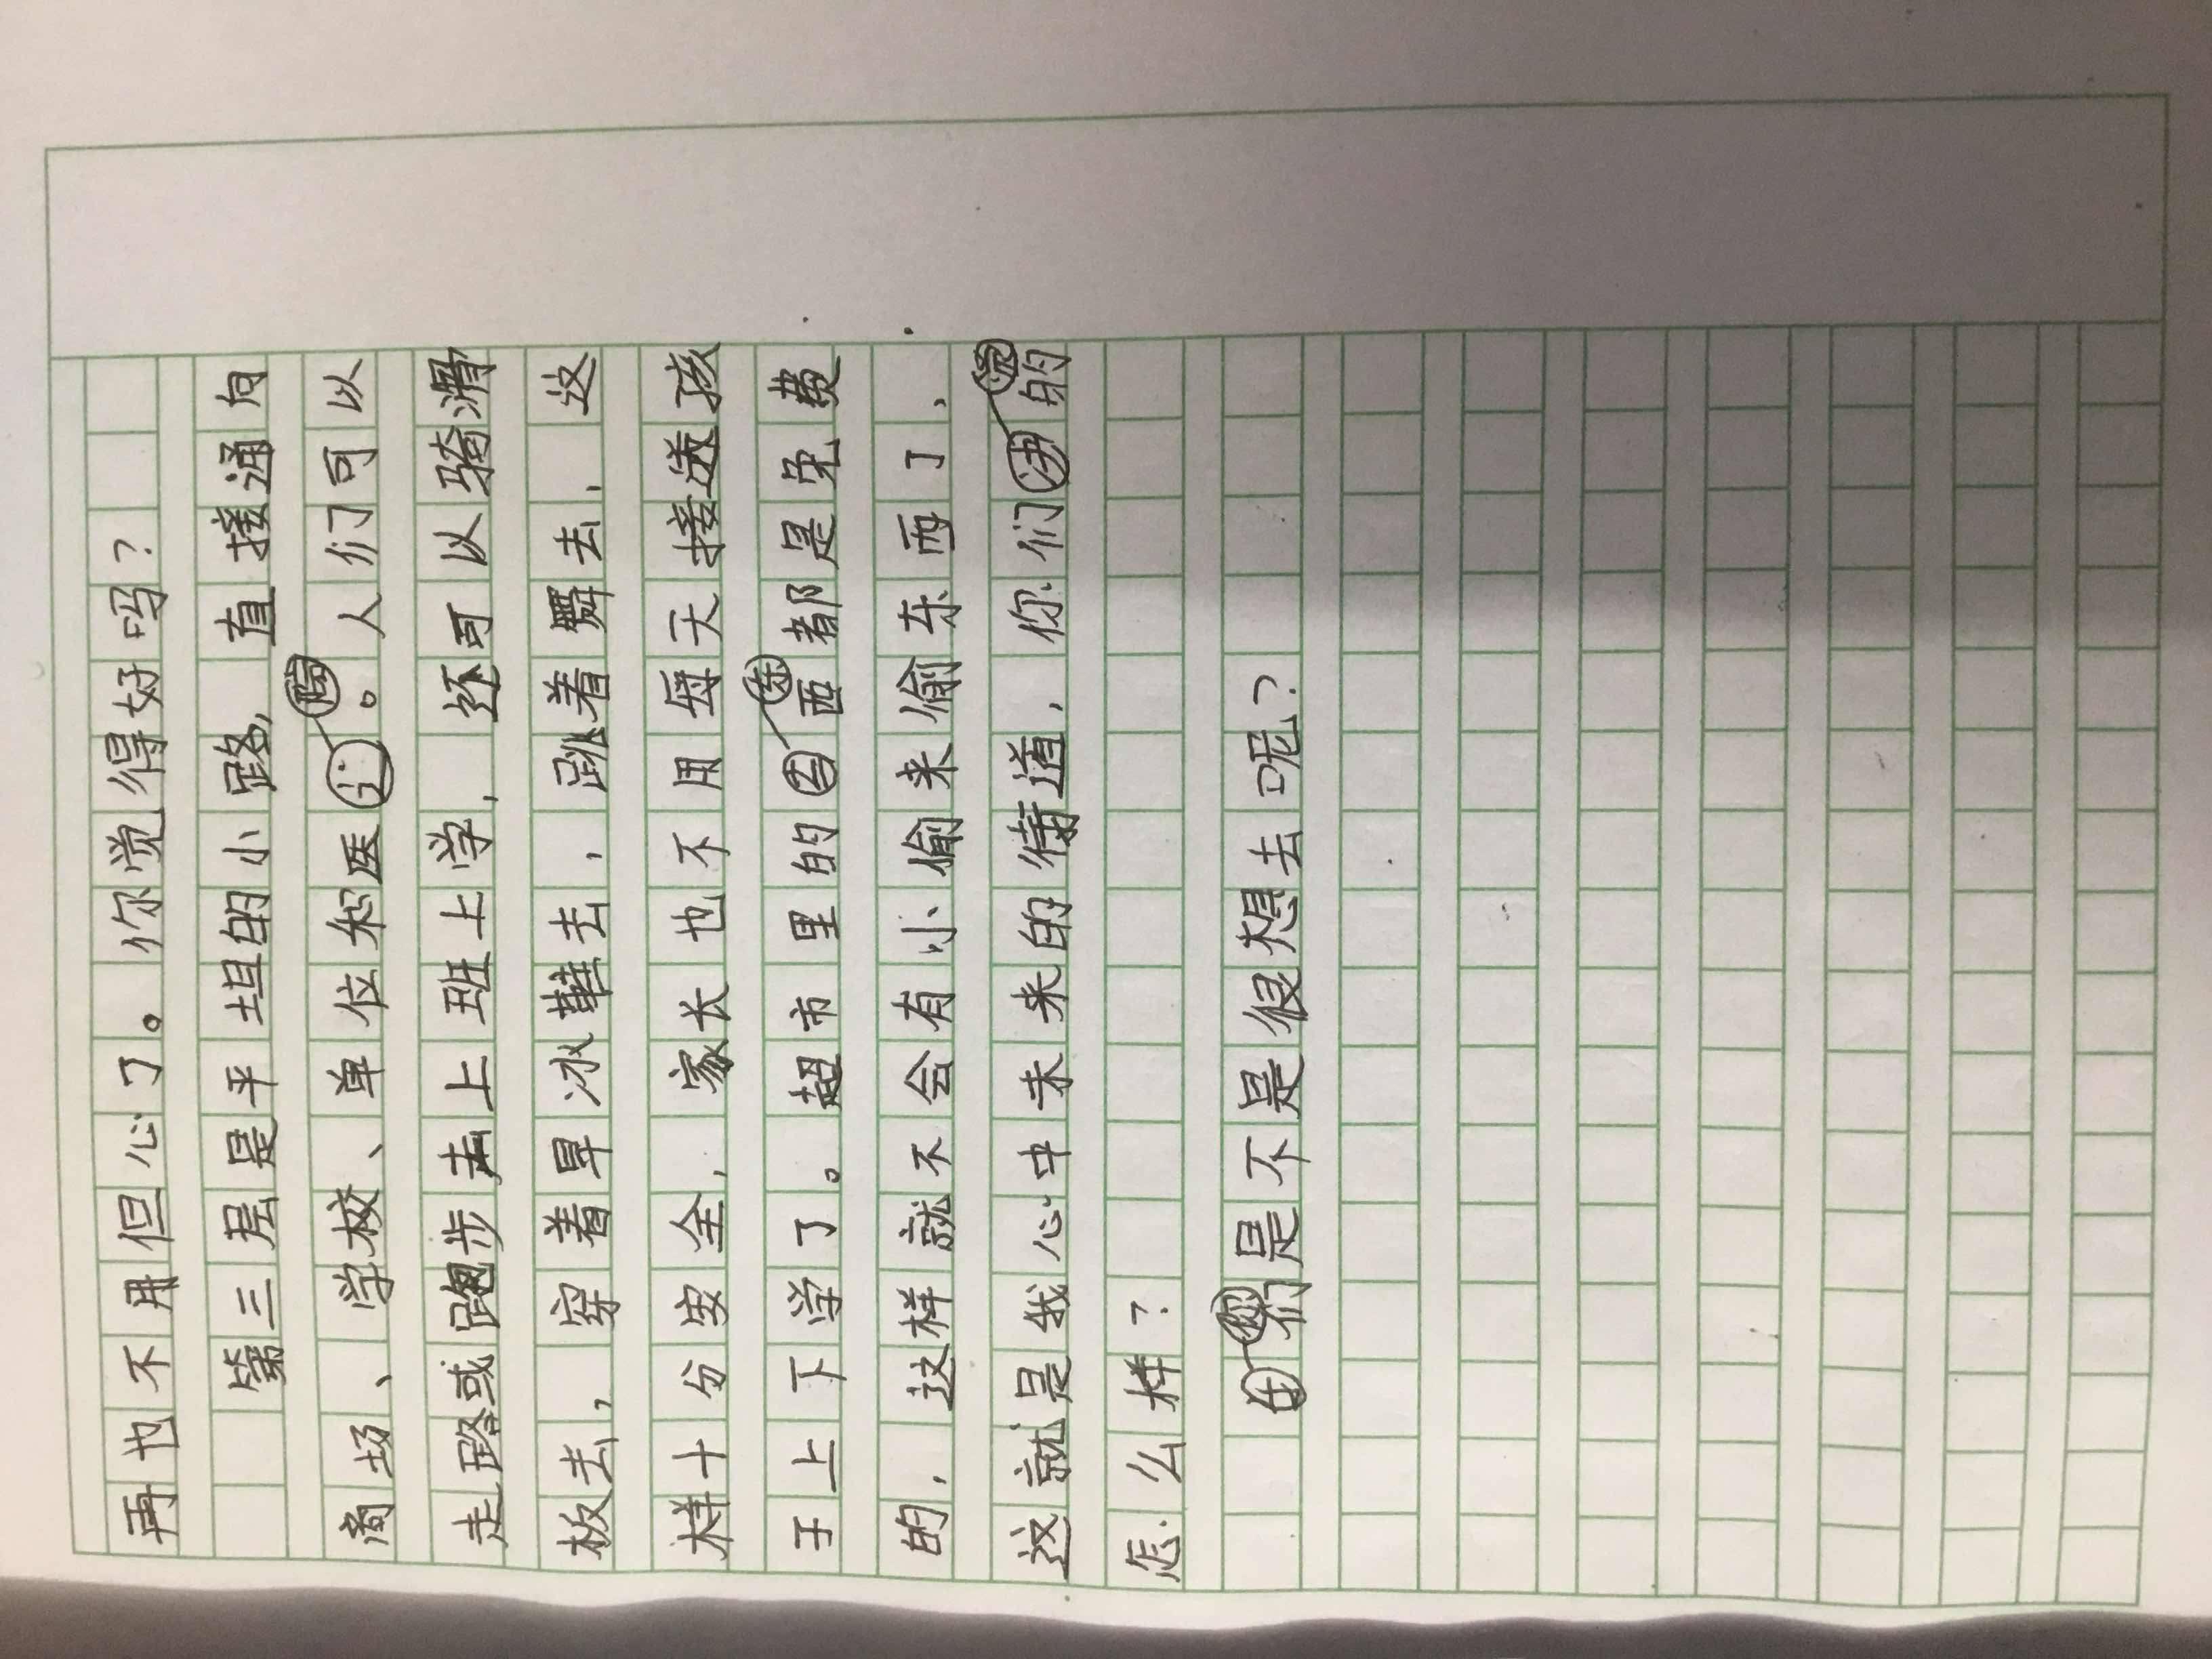 再也不用但心了。你觉得好吗?
第三层是平坦的小路,直接通向
商场、学校、单位和医院。人们可以
走路或跑步去上班上学,还可以骑滑
板去,穿着旱冰鞋去,跳着舞去,这
样十分安全,家长也不用每天接送孩
子上下学了。超市里的东西都是免费
的,这样就不会有小偷来偷东西了,
这就是我心中未来的街道,你们觉的
怎么样?
你们是不是很想去呢?